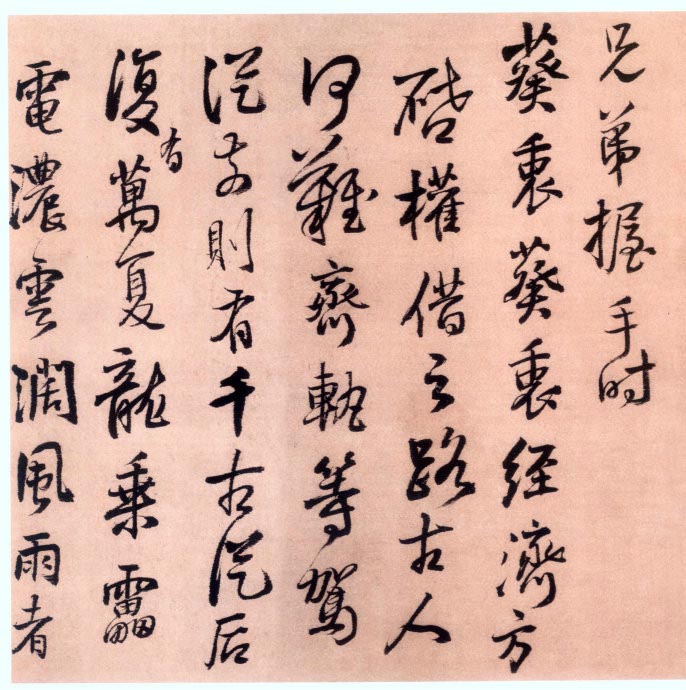 兄弟握手时
葵衷葵衷经济方
啓權借之路古人
何難齊軌等駕
從前則有千古從后
復有萬夏龍乘靁
電濃雲潤風雨者